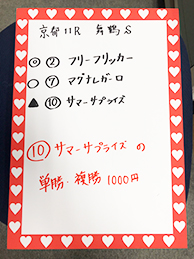 京都11R 舞鶴S
◎ ② フリーフリッカー
○ ⑦ マグナレガーロ
▲ ⑩ サマーサプライズ
⑩ サマーサプライズ の
単勝・複勝 1000円